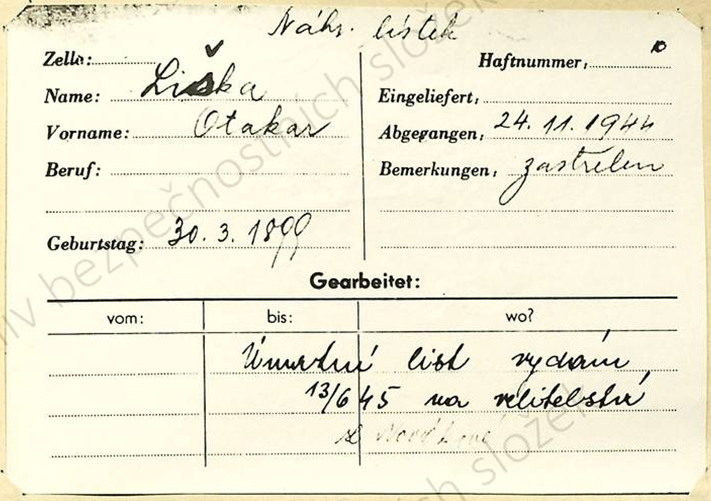 Náhr. lístek
Zelle:
Haftnummer,
Name: Liška
Eingeliefert,
Vorname: Otakar
Abgegangen, 24. 11. 1944
Beruf:
Bemerkungen, zastřelen
Geburtstag: 30. 3. 1899
Gearbeitet:
vom: bis: wo?
Úmrtní list vydán
13/6 45 na velitelství